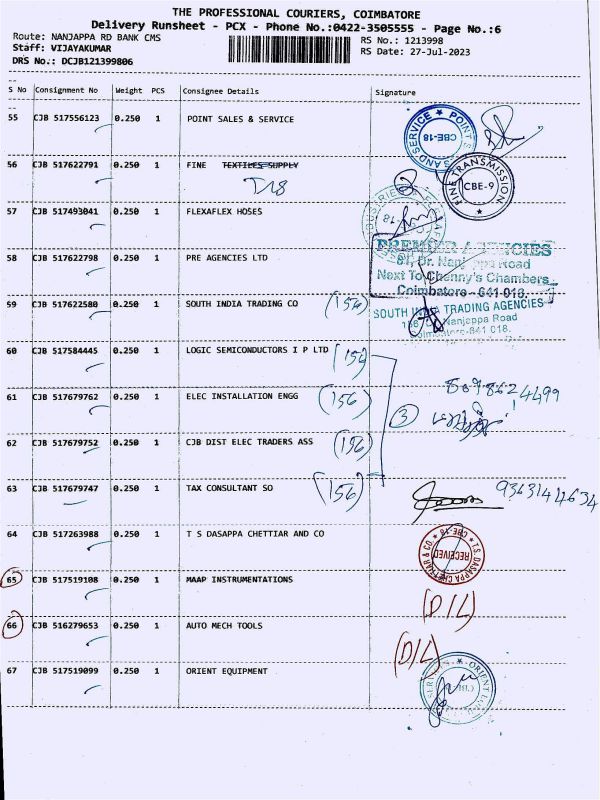 THE PROFESSIONAL COURIERS, COIMBATORE
Delivery Runsheet - PCX - Phone No.:0422-3505555 - Page No.:6
Route: NANJAPPA RD BANK CMS
RS No.: 1213998
Staff: VIJAYAKUMAR
RS Date: 27-Jul-2023
DRS No.: DCJB121399806
S No Consignment No Weight PCS Consignee Details Signature
55 CJB 517556123 0.250 1 POINT SALES & SERVICE
POINT SALES AND SERVICE CBE-18
56 CJB 517622791 0.250 1 FINE TEXTILES SUPPLY
FINE TRANSMISSION CBE-9
57 CJB 517493041 0.250 1 FLEXAFLEX HOSES
58 CJB 517622798 0.250 1 PRE AGENCIES LTD
PREMIER AGENCIES
81, Dr. Nanjappa Road
Next To Chenny's Chambers
Coimbatore - 641 018.
59 CJB 517622580 0.250 1 SOUTH INDIA TRADING CO (156)
SOUTH INDIA TRADING AGENCIES
Nanjappa Road
Coimbatore-641 018.
60 CJB 517584445 0.250 1 LOGIC SEMICONDUCTORS I P LTD (156)
61 CJB 517679762 0.250 1 ELEC INSTALLATION ENGG (156)
3
62 CJB 517679752 0.250 1 CJB DIST ELEC TRADERS ASS (156)
63 CJB 517679747 0.250 1 TAX CONSULTANT SO (156)
64 CJB 517263988 0.250 1 T S DASAPPA CHETTIAR AND CO
T.S. DASAPPA CHETTIAR & CO. CBE-18 RECEIVED
65 CJB 517519108 0.250 1 MAAP INSTRUMENTATIONS
(D/L)
66 CJB 516279653 0.250 1 AUTO MECH TOOLS
(D/L)
67 CJB 517519099 0.250 1 ORIENT EQUIPMENT
ORIENT